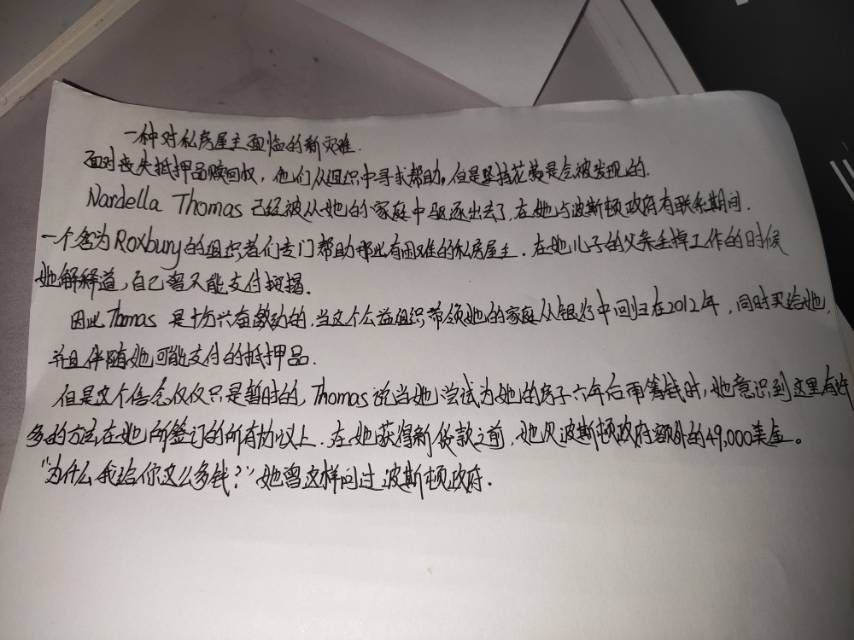 一种对私房屋主面临的新灾难.
面对丧失抵押品赎回权，他们从组织中寻求帮助，但是坚持花费是会被发现的.
Nardella Thomas 已经被从她的家庭中驱逐出去了,在她与波斯顿政府有联系期间.
一个名为Roxbury的组织者们专门帮助那些有困难的私房屋主.在她儿子的父亲丢掉工作的时候
她解释道,自己曾不能支付抵押.
因此Thomas 是十分兴奋激动的,当这个公益组织带领她的家庭从银行中回归在2012年,同时买给她,
并且伴随她可能支付的抵押品.
但是这个信念仅仅只是暂时的,Thomas说当她尝试为她的房子六年后再筹钱时,她意识到这里有许
多的方法在她所签订的所有协议上.在她获得新贷款之前,她欠波斯顿政府额外的49,000美金。
"为什么我给你这么多钱?"她曾这样问过波斯顿政府.